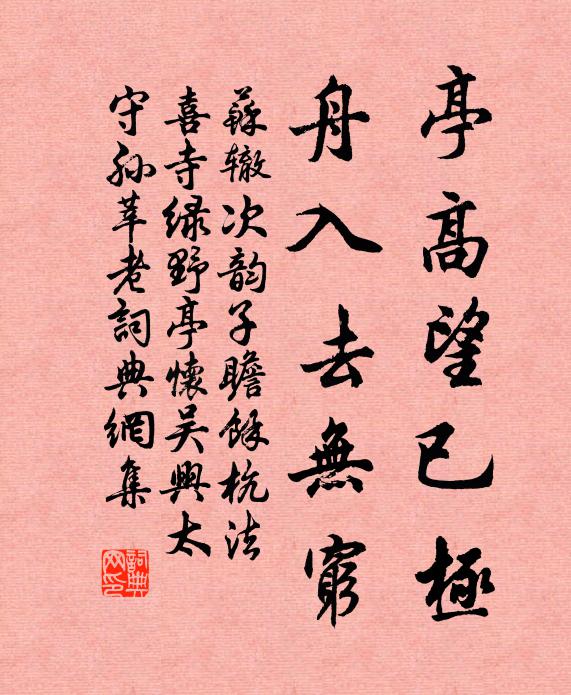 亭高望已極
舟入去無窮
蘇辙次韵子瞻餘杭法
喜寺绿野亭懷吴興太
守孙莘老詞典網集
詞典
网印